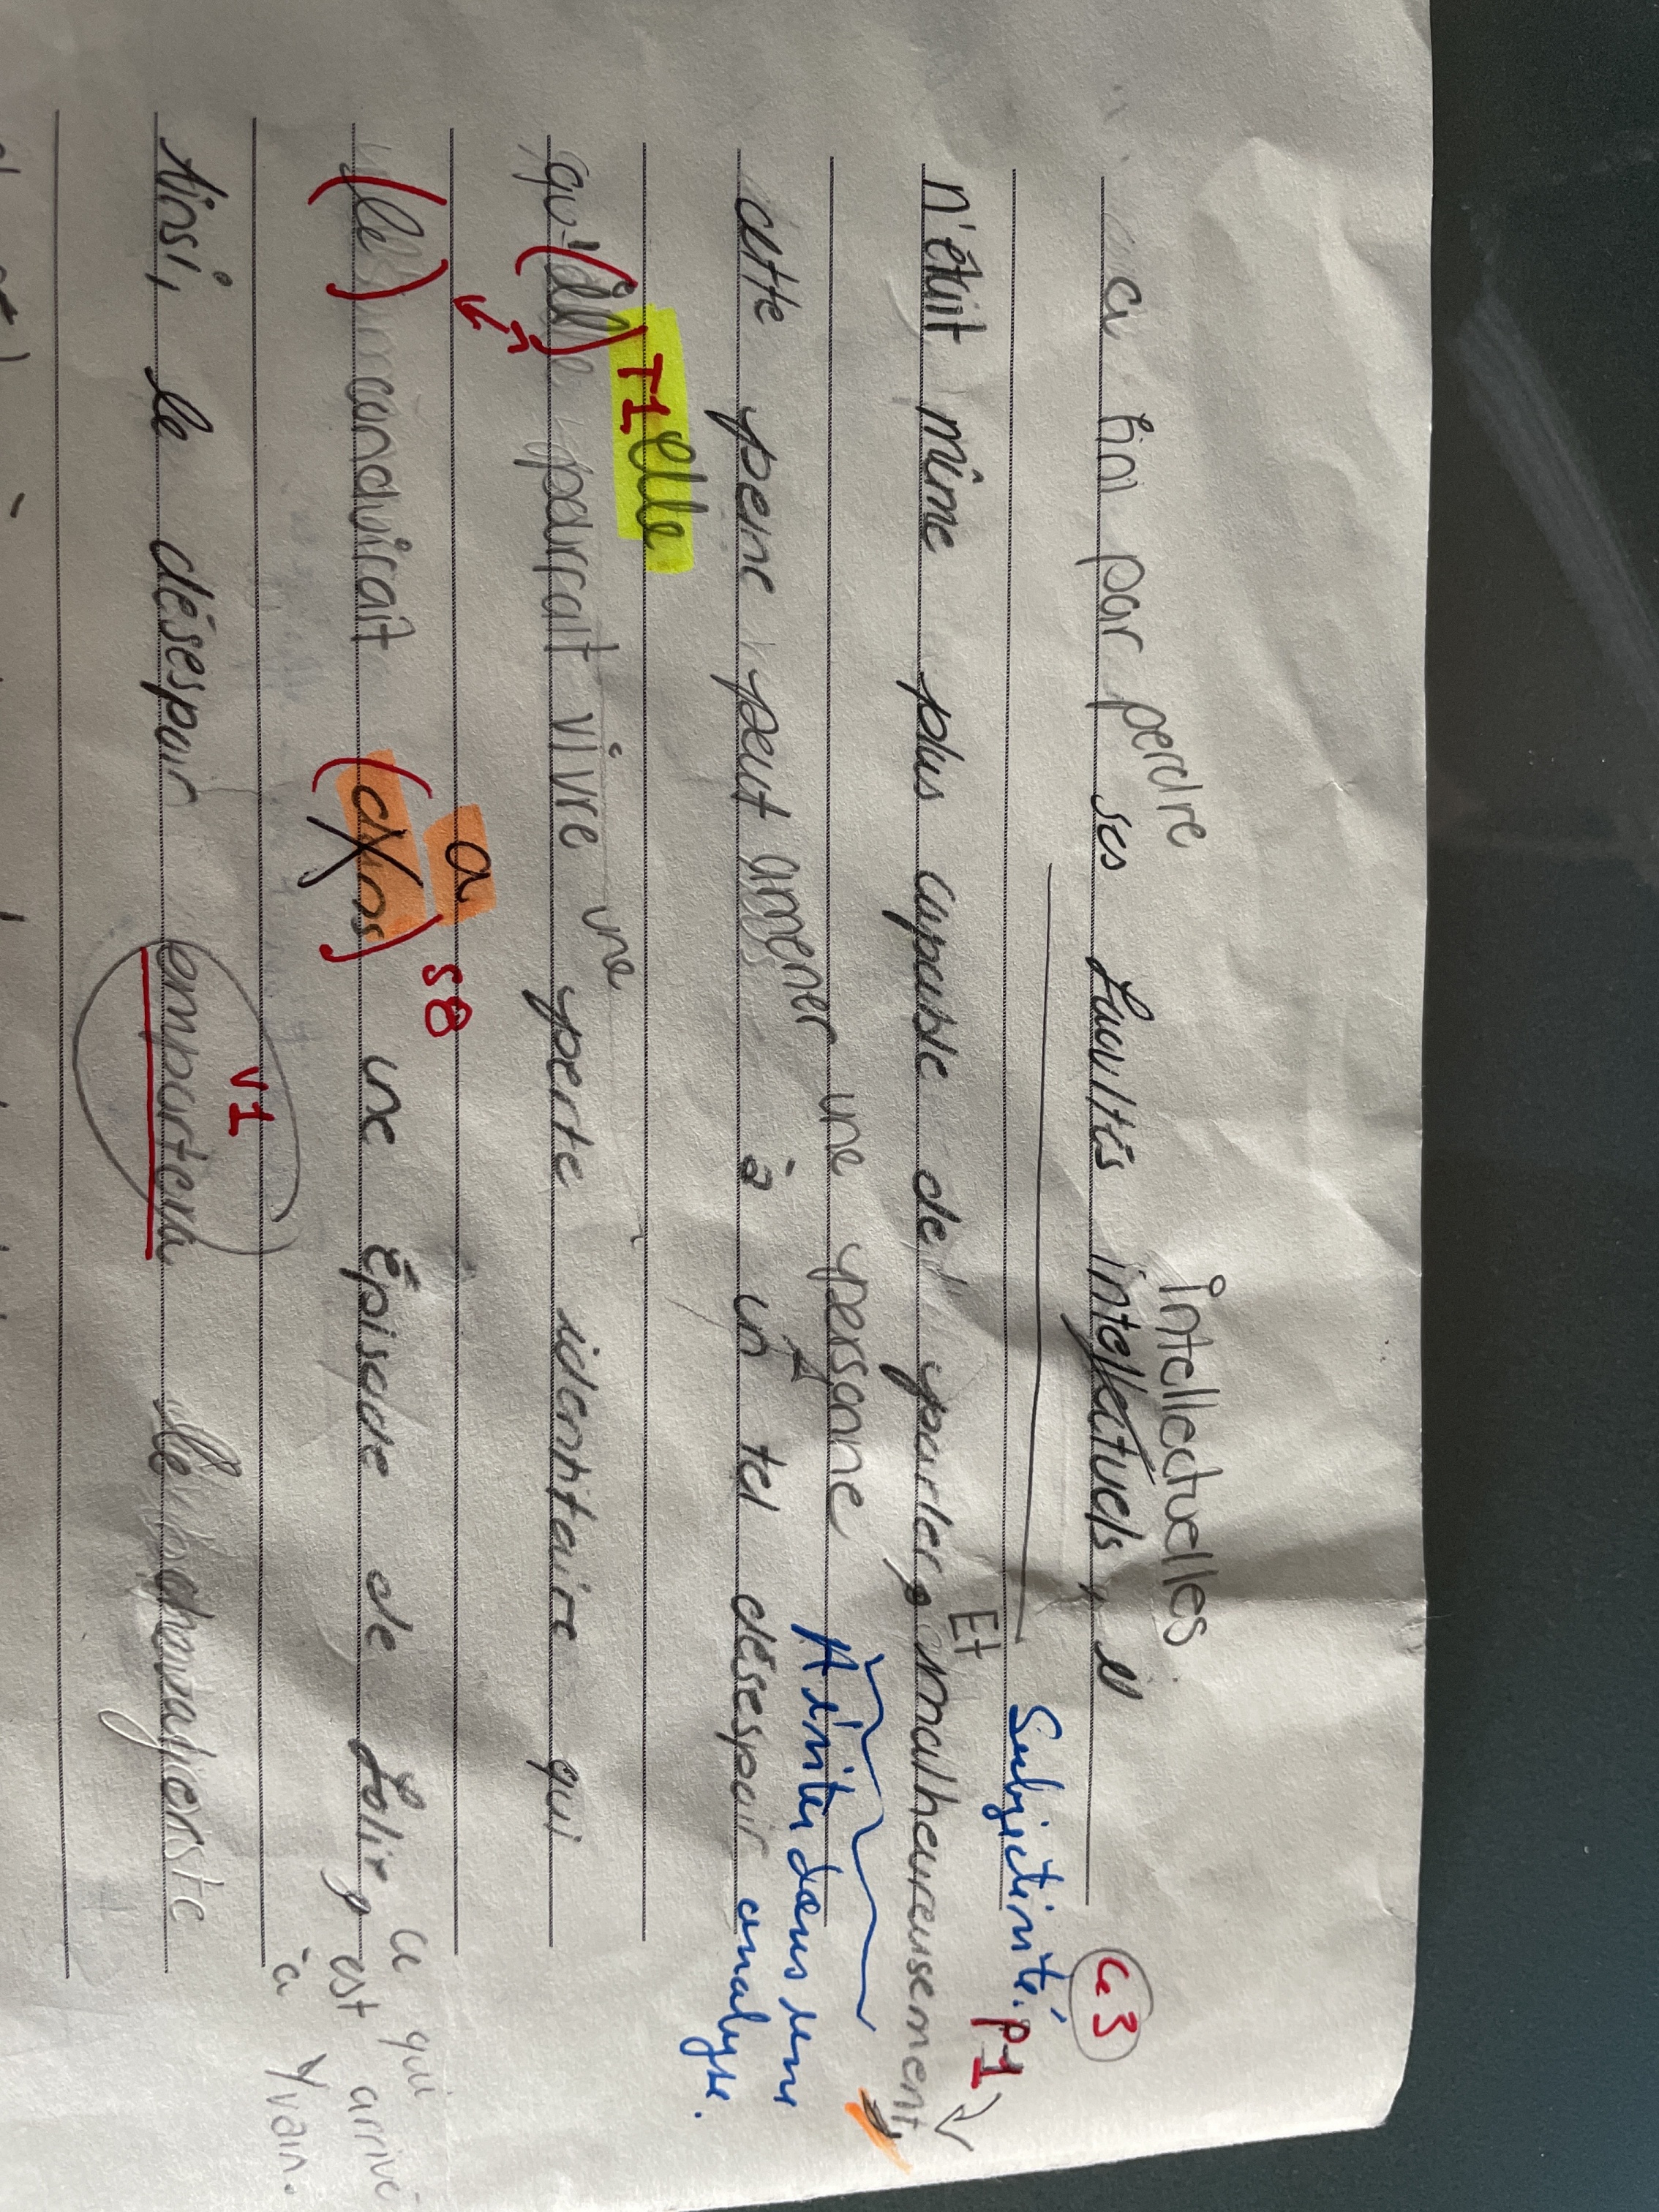 intellectuelles
a fini par perdre ses facultés intellectuels, il Ca3
Subjectivité. P1
Et
n'était même plus capable de parler, malheureusement,
une personne À éviter dans une analyse.
cette peine peut amener à un tel désespoir
T1 elle
qu'il pourrait vivre une perte identitaire qui
a S8
le conduirait dans une épisode de folie, ce qui est arrivé à Yvain.
V1
Ainsi, le désespoir emportera le chevalier